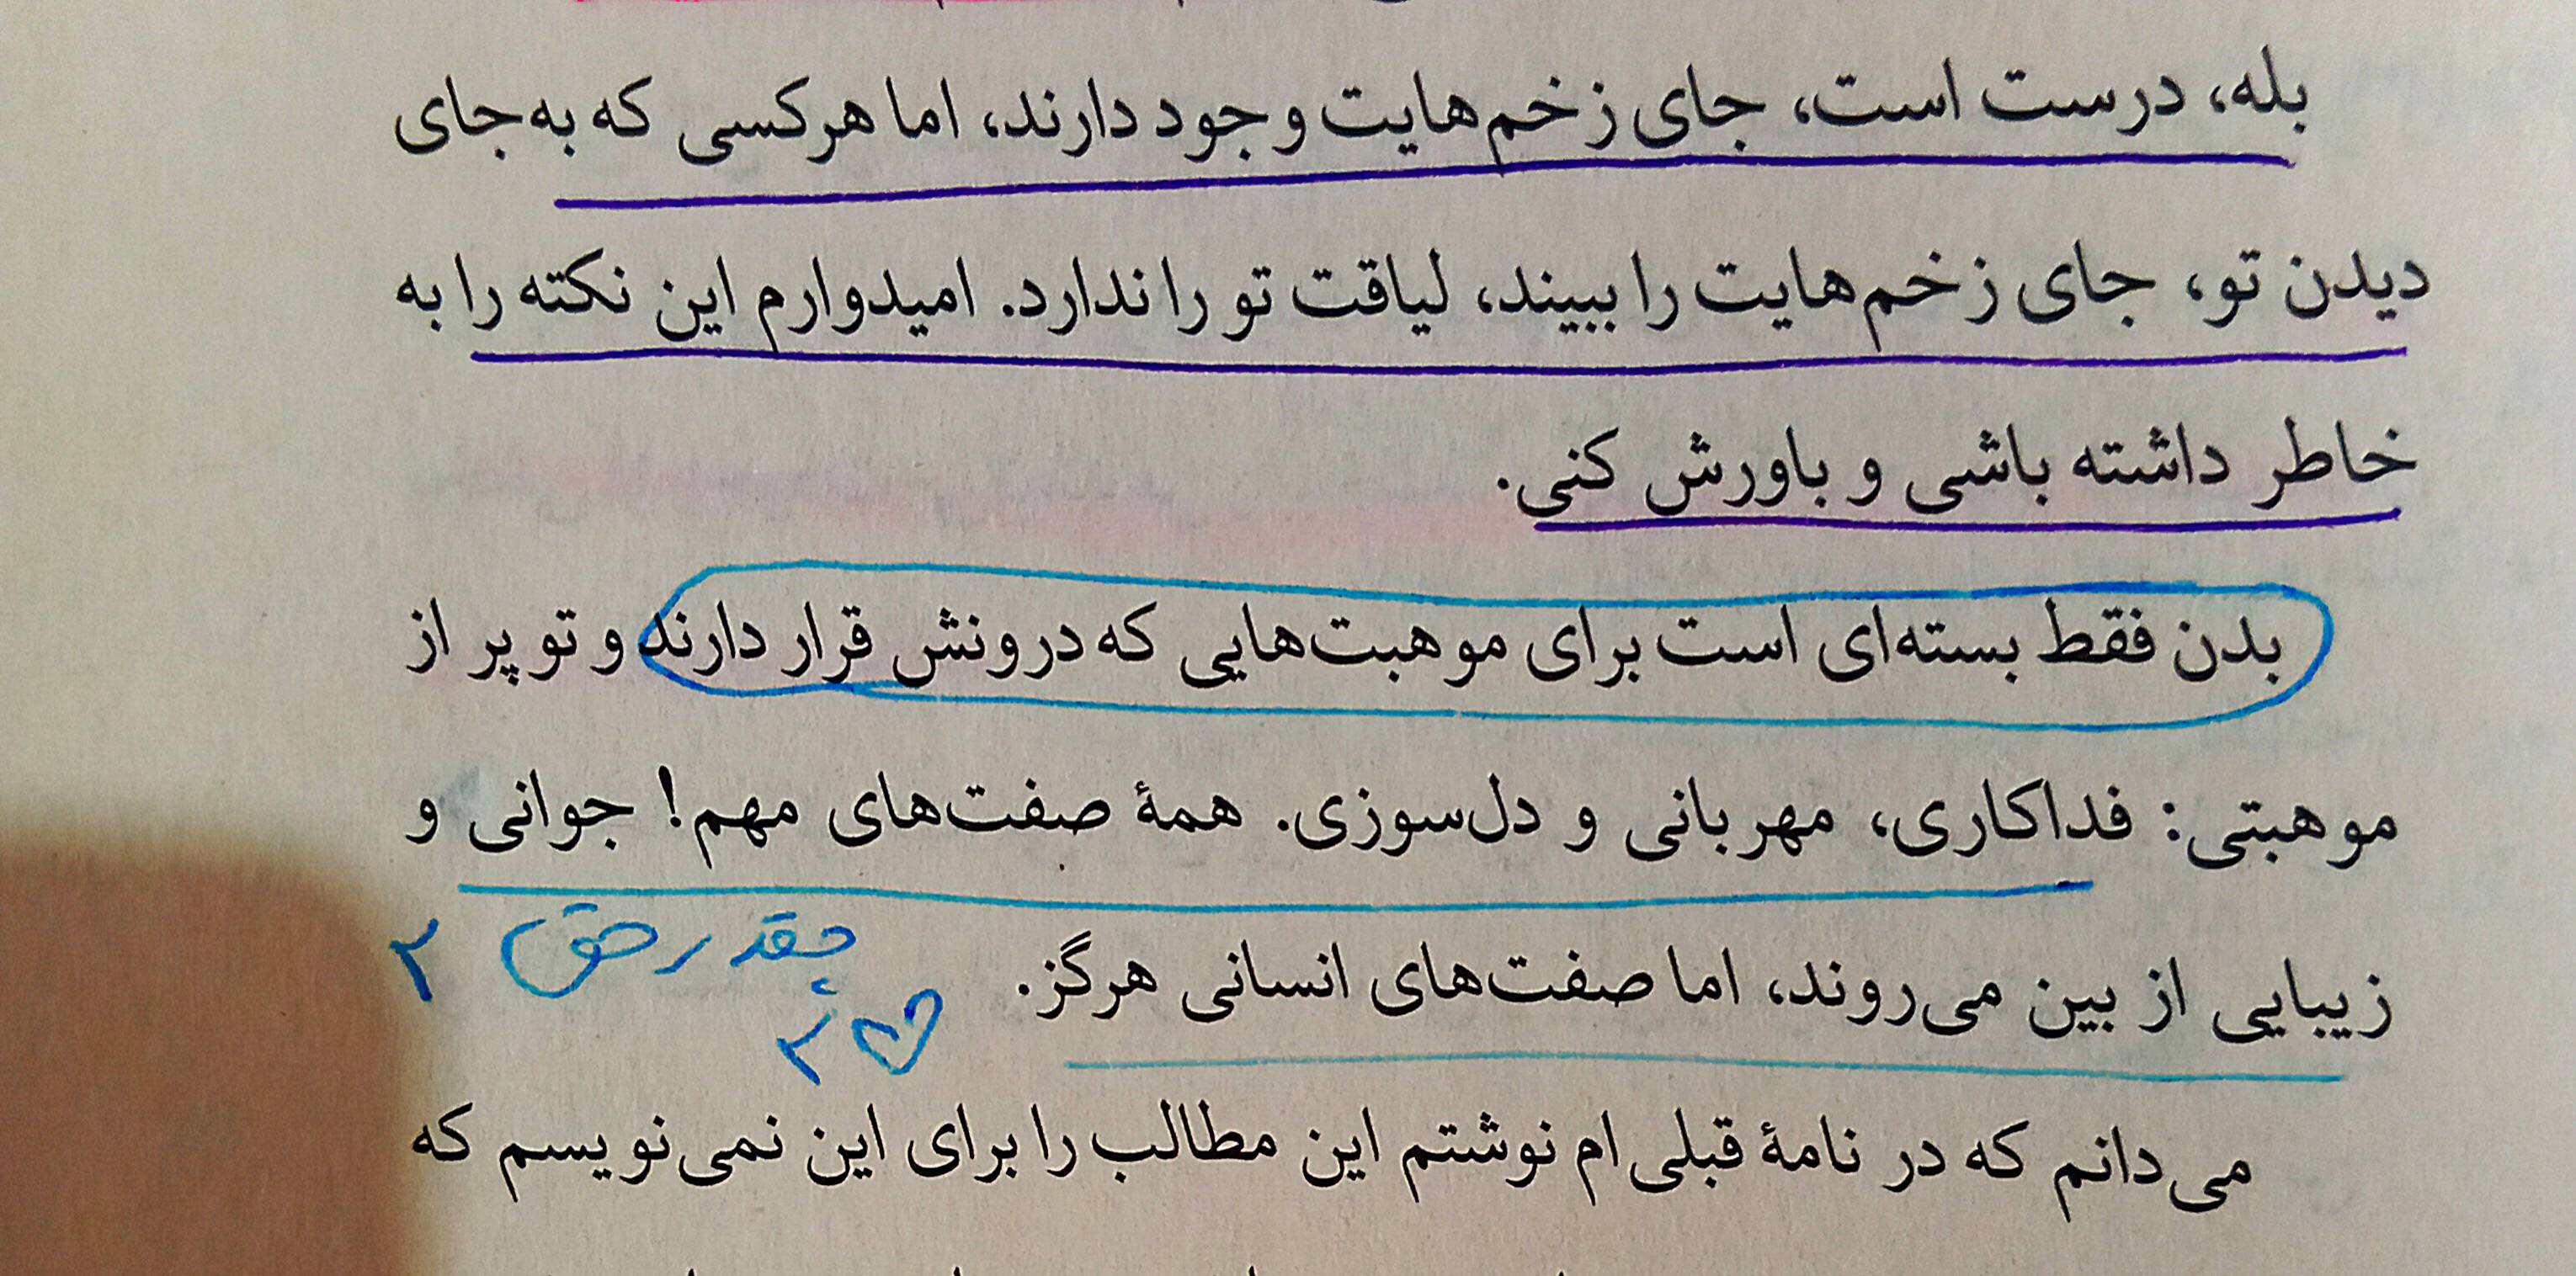 بله، درست است، جای زخم‌هایت وجود دارند، اما هرکسی که به‌جای
دیدن تو، جای زخم‌هایت را ببیند، لیاقت تو را ندارد. امیدوارم این نکته را به
خاطر داشته باشی و باورش کنی.
بدن فقط بسته‌ای است برای موهبت‌هایی که درونش قرار دارند و تو پر از
موهبتی: فداکاری، مهربانی و دل‌سوزی. همهٔ صفت‌های مهم! جوانی و
زیبایی از بین می‌روند، اما صفت‌های انسانی هرگز.
چقدر حق
می‌دانم که در نامهٔ قبلی‌ام نوشتم این مطالب را برای این نمی‌نویسم که